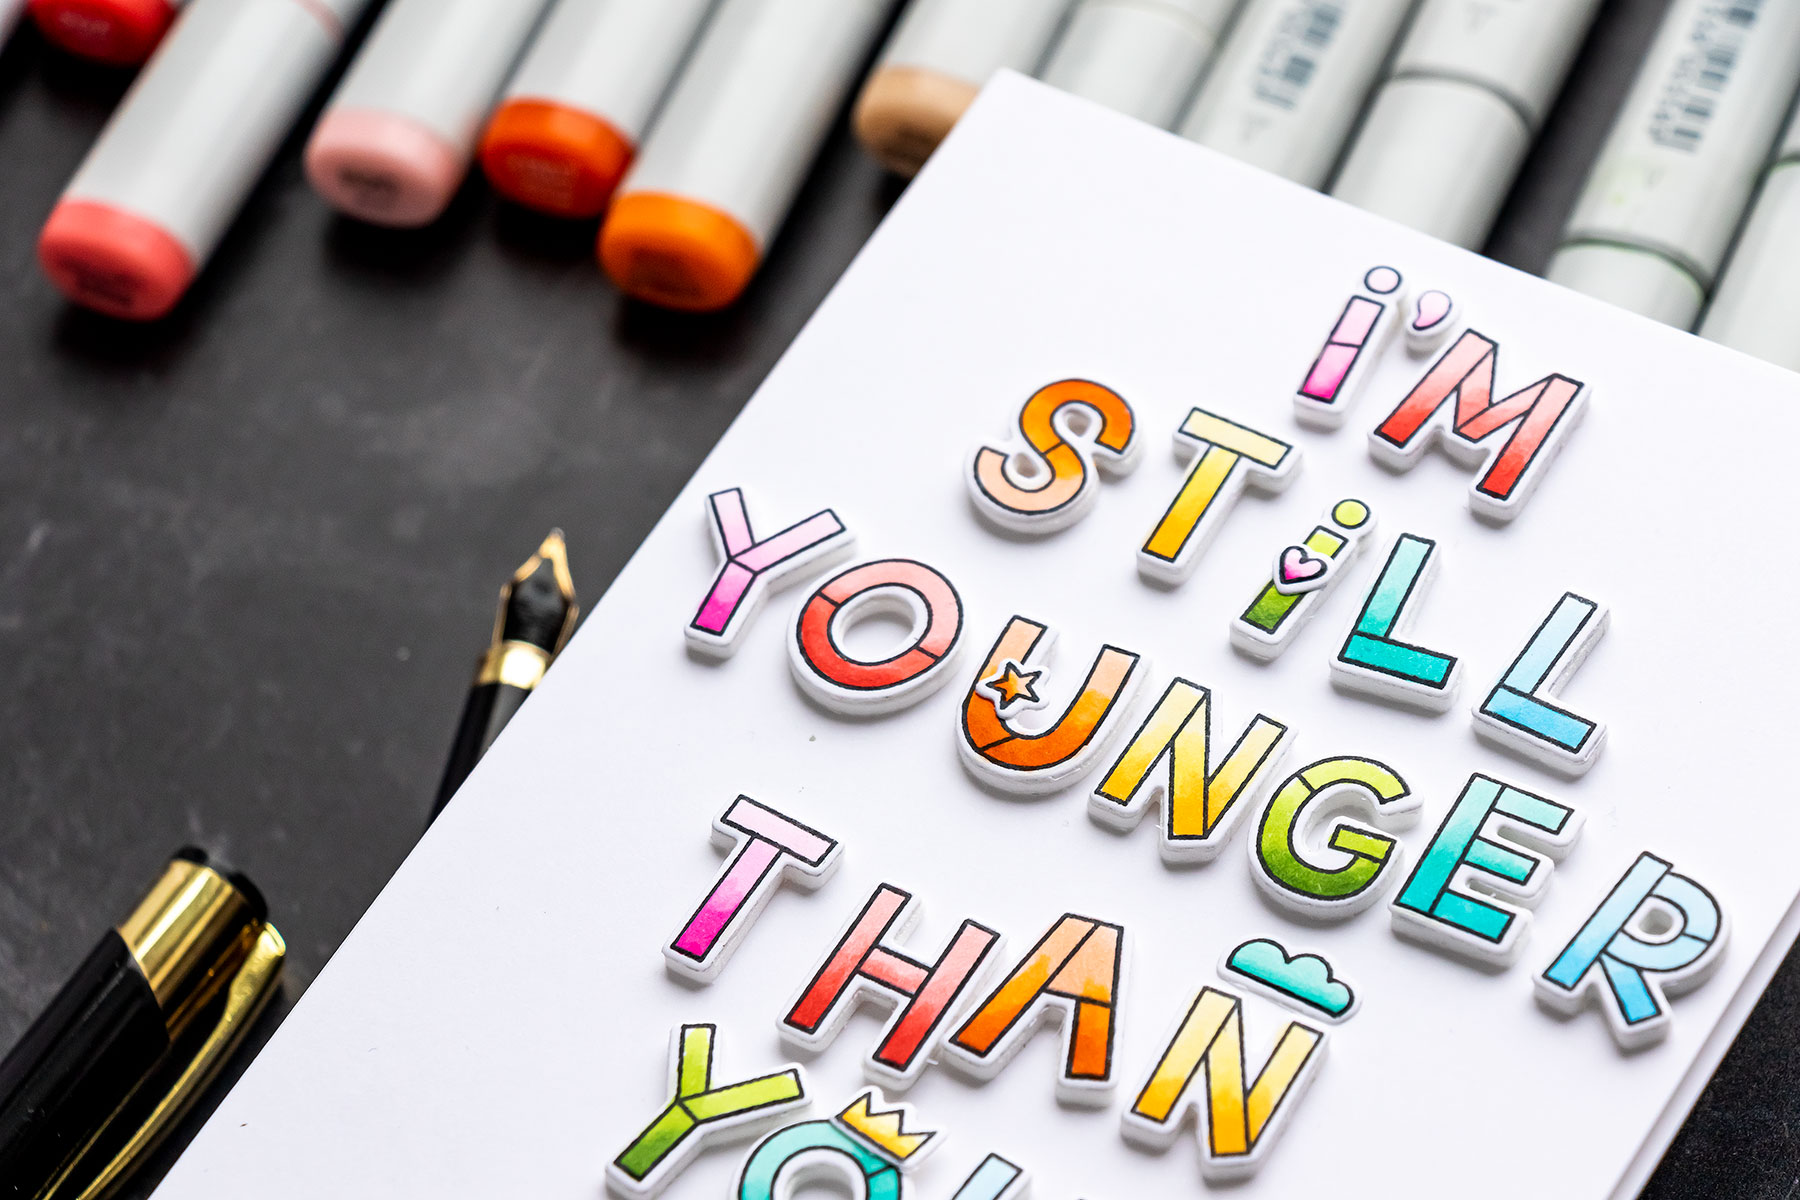 i'M
STiLL
YOUNGER
THAN
YOU